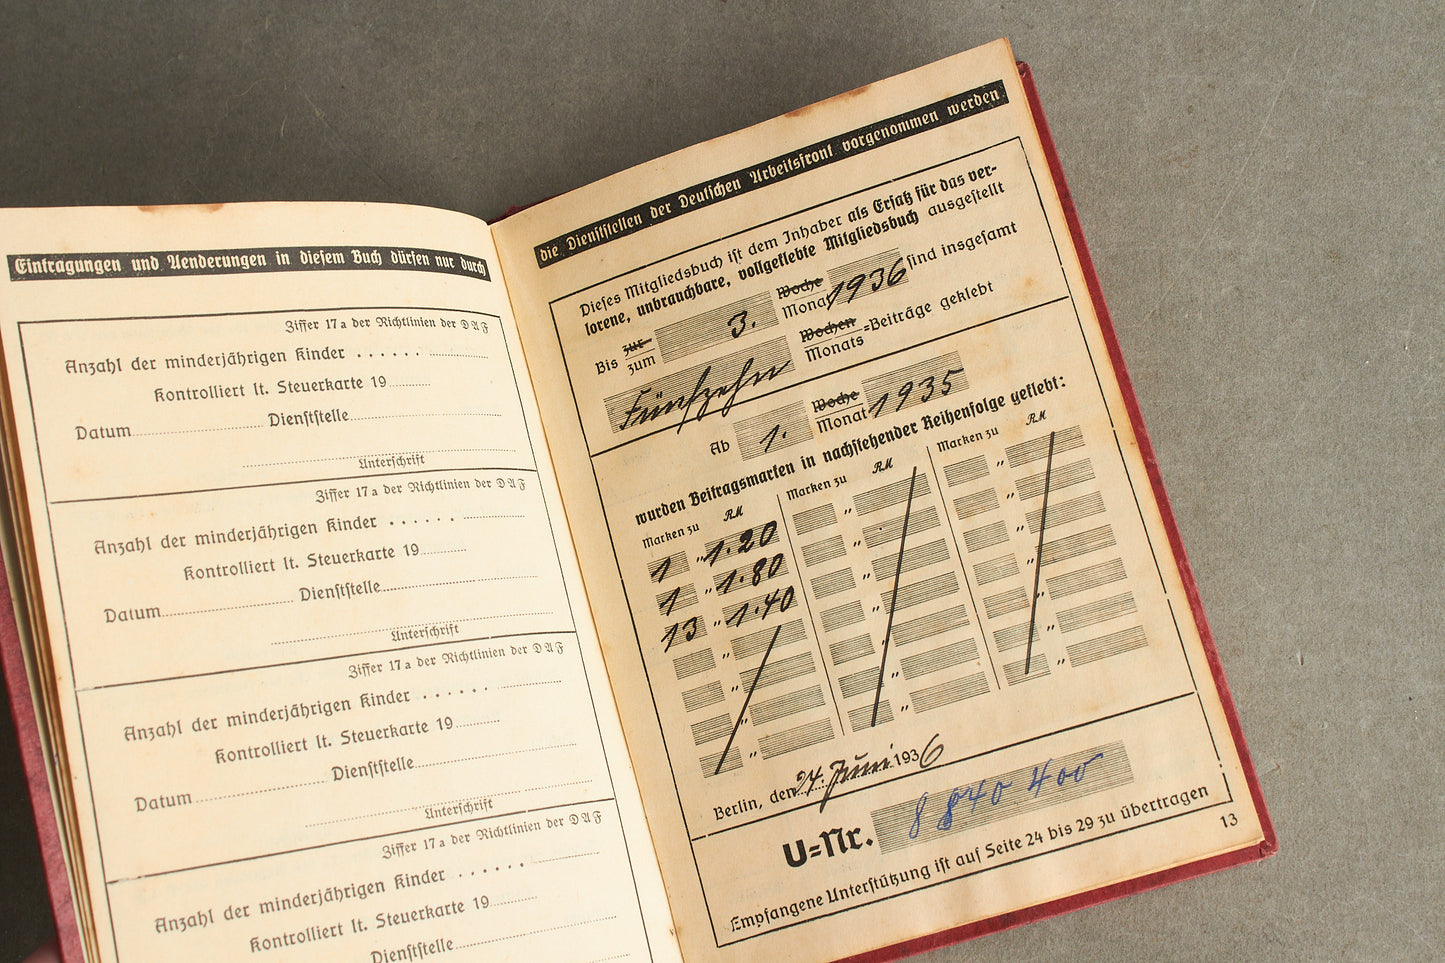 Eintragungen und Aenderungen in diesem Buch dürfen nur durch
Ziffer 17a der Richtlinien der DAF
Anzahl der minderjährigen Kinder . . . . . .
Kontrolliert lt. Steuerkarte 19
Datum Dienststelle
Unterschrift
Ziffer 17a der Richtlinien der DAF
Anzahl der minderjährigen Kinder . . . . . .
Kontrolliert lt. Steuerkarte 19
Datum Dienststelle
Unterschrift
Ziffer 17a der Richtlinien der DAF
Anzahl der minderjährigen Kinder . . . . . .
Kontrolliert lt. Steuerkarte 19
Datum Dienststelle
Unterschrift
Ziffer 17a der Richtlinien der DAF
Anzahl der minderjährigen Kinder . . . . . .
Kontrolliert lt. Steuerkarte 19
Dienststelle
die Dienststellen der Deutschen Arbeitsfront vorgenommen werden
Dieses Mitgliedsbuch ist dem Inhaber als Ersatz für das ver-
lorene, unbrauchbare, vollgeklebte Mitgliedsbuch ausgestellt
Bis zur zum 3. Woche Monat 1936 sind insgesamt
Fünfzehn Wochen Monats =Beiträge geklebt
Ab 1. Woche Monat 1935
wurden Beitragsmarken in nachstehender Reihenfolge geklebt:
Marken zu RM Marken zu RM Marken zu RM
1 " 1.20 " "
1 " 1.80 " "
13 " 1.40 " "
" " "
" " "
" " "
" " "
Berlin, den 24. Juni 1936
U=Nr. 8 840 400
Empfangene Unterstützung ist auf Seite 24 bis 29 zu übertragen
13